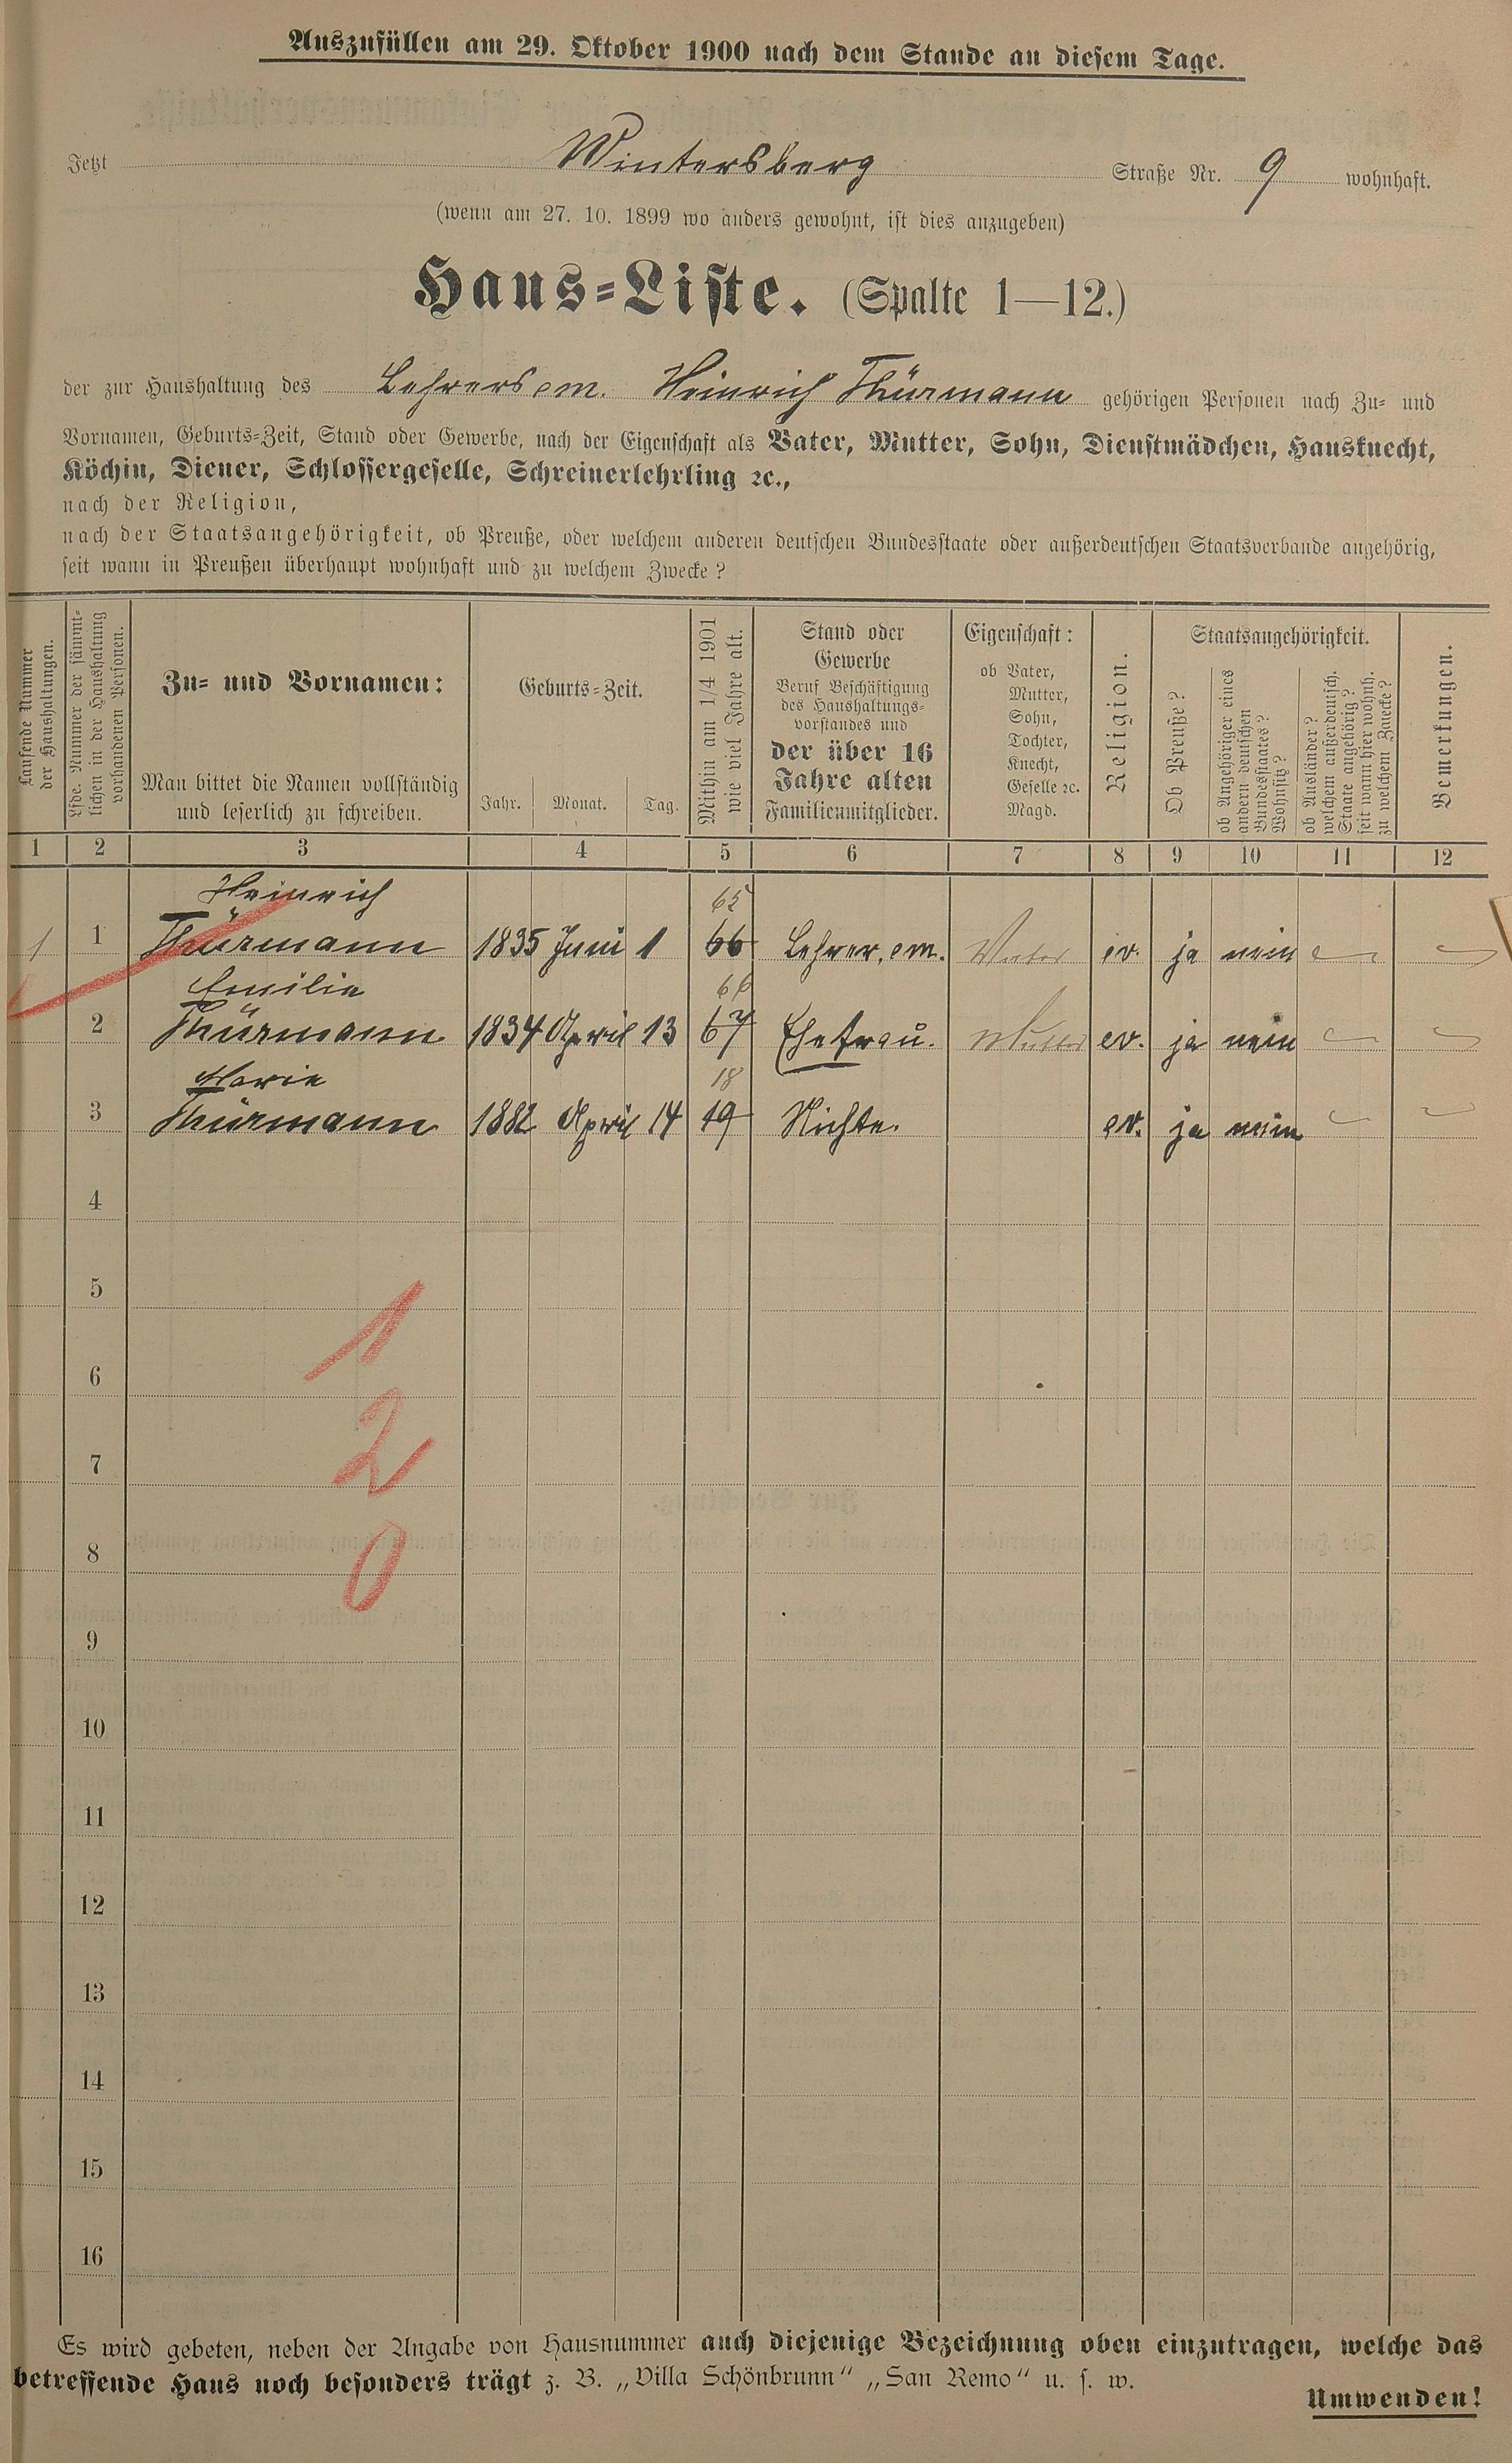 Auszufüllen am 29. Oktober 1900 nach dem Stande an diesem Tage.
Jetzt Wintersberg Straße Nr. 9 wohnhaft.
(wenn am 27. 10. 1899 wo anders gewohnt, ist dies anzugeben)
Haus-Liste. (Spalte 1—12.)
der zur Haushaltung des Lehrers em. Heinrich Thürmann gehörigen Personen nach Zu- und
Vornamen, Geburts-Zeit, Stand oder Gewerbe, nach der Eigenschaft als Vater, Mutter, Sohn, Dienstmädchen, Hausknecht,
Köchin, Diener, Schlossergeselle, Schreinerlehrling ꝛc.,
nach der Religion,
nach der Staatsangehörigkeit, ob Preuße, oder welchem anderen deutschen Bundesstaate oder außerdeutschen Staatsverbande angehörig,
seit wann in Preußen überhaupt wohnhaft und zu welchem Zwecke?
Laufende Nummer
der Haushaltungen.
Lfde. Nummer der sämmt-
lichen in der Haushaltung
vorhandenen Personen.
Zu- und Vornamen:
Man bittet die Namen vollständig
und leserlich zu schreiben.
Geburts-Zeit.
Jahr. Monat. Tag.
Mithin am 1/4 1901
wie viel Jahre alt.
Stand oder
Gewerbe
Beruf Beschäftigung
des Haushaltungs-
vorstandes und
der über 16
Jahre alten
Familienmitglieder.
Eigenschaft:
ob Vater,
Mutter,
Sohn,
Tochter,
Knecht,
Geselle ꝛc.
Magd.
Religion.
Staatsangehörigkeit.
Ob Preuße?
ob Angehöriger eines
andern deutschen
Bundesstaates?
Wohnsitz?
ob Ausländer?
welchem außerdeutsch.
Staate angehörig?
seit wann hier wohnh.
zu welchem Zwecke?
Bemerkungen.
1 2 3 4 5 6 7 8 9 10 11 12
Heinrich 65
1 1 Thürmann 1835 Juni 1 66 Lehrer, em. Vater ev. ja nein
Emilie 66
2 Thürmann 1834 April 13 67 Ehefrau. Mutter ev. ja nein
Marie 18
3 Thürmann 1882 April 14 19 Nichte. ev. ja nein
4
5
1
6
2
7
8
0
9
10
11
12
13
14
15
16
Es wird gebeten, neben der Angabe von Hausnummer auch diejenige Bezeichnung oben einzutragen, welche das
betreffende Haus noch besonders trägt z. B. „Villa Schönbrunn“ „San Remo“ u. s. w.
Umwenden!